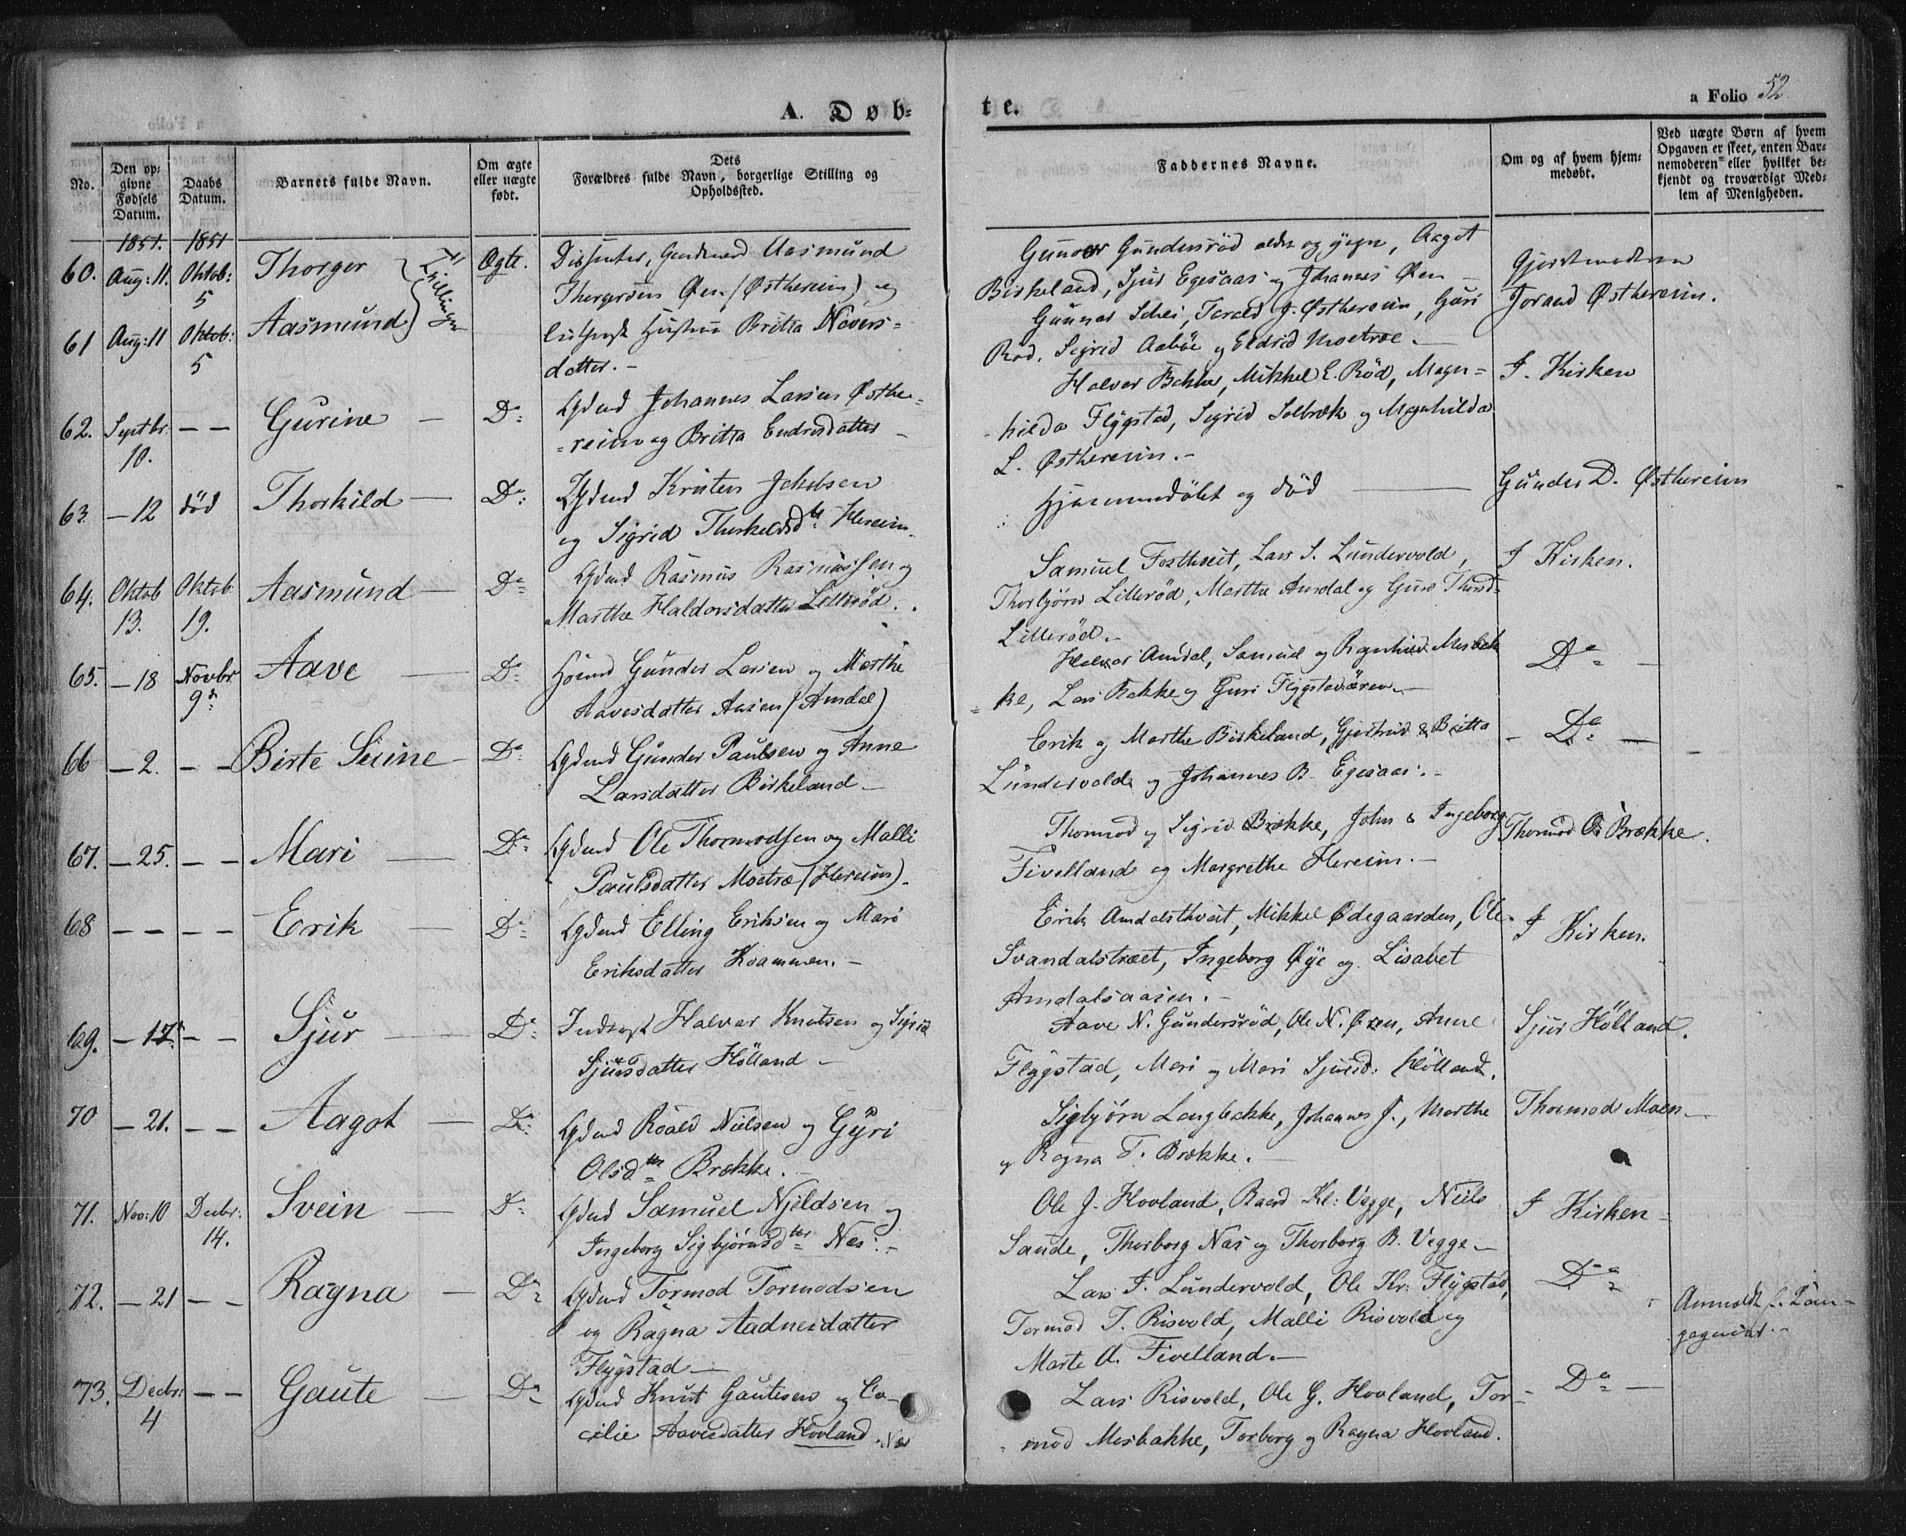 A. Døb-
te.
a Folio 52
No.
Den op-
givne
Fødsels
Datum.
Daabs
Datum.
Barnets fulde Navn.
Om ægte
eller uægte
født.
Dets
Forældres fulde Navn, borgerlige Stilling og
Opholdssted.
Faddernes Navne.
Om og af hvem hjem-
medøbt.
Ved uægte Børn af hvem
Opgaven er skeet, enten Bar-
nemoderen eller hvilket be-
kjendt og troværdigt Med-
lem af Menigheden.
1851. 1851
60. Aug: 11 Oktob: 5 Thorger Tvillinger Ægte. Dissenter, Gaardmand Aasmund
Thorgersen Øen (Østhereim) og
61 Aug: 11 Oktob: 5 Aasmund Hustru Britta Nevers-
datter.-
Gunder Gundersrød og , Aagot
Birkeland, Sjur Egesaas og Johannes Øen
Gunnar Schei, Torald J. Østhereim, Guri
Rød, Sigrid Aabøe og Eldrid Moetræ.-
Gjordemoderen
Jorand Østhereim.
62. Septbr 10. — — Gurine — Do Johannes Larsen Østhe-
-reim og Britta Endresdatter
Halvor Bakke, Mikkel E. Rød, Magn-
-hilda Flygstad, Sigrid Solbræk og Magnhilda
L. Østhereim.-
I Kirken
63. — 12 død Thorkild — Do Kristen Jakobsen
og Sigrid Thorkeldsdtr Hereim.
Hjemmedøbt og død
Gunder D. Østhereim
64. Oktob 13. Oktob 19. Aasmund — Do Rasmus Rasmussen og
Marthe Haldorsdatter Lillerød.
Samuel Fosthveit, Lars S. Lundervold,
Thorbjørn Lillerød, Marthe Amdal og Guro Thorsd-
Lillerød.-
I Kirken.
65. — 18 Novbr 9de Aave — Do Gunder Larsen og Marthe
Aavesdatter Aasen (Amdal)
Halvor Amdal, Samuel og Ragnhild Mosbak-
ke, Lars Bakke og Guri Flygstadøren.-
Do —
66 — 2. — — Birte Serine — Do Gunder Paulsen og Anne
Larsdatter Birkeland —
Erik og Marthe Birkeland, Gjertrud & Britta
Lundervolde og Johannes B. Egesaas.-
— Do —
67. — 25. — — Mari — Do Ole Thormodsen og Malli
Paulsdatter Moetræ (Hereim).
Thormod og Sigrid Brække, John & Ingeborg
Fivelland og Margrethe Hereim.-
Thormod O. Brække.
68 — — — — Erik — Do Elling Eriksen og Mari
Eriksdatter Kvammen.-
Erik Amdalsthveit, Mikkel Ødegaarden, Ole
Svandalstræet, Ingeborg Øye og Lisabet
Amdalsaasen.-
I Kirken.
69. — 17. — Sjur — Do Inderst Halvor Knutsen og Sigrid
Sjursdatter Hølland —
Aave N. Gundersrød, Ole N. Øren, Anne
Flygstad, Mari og Mari Sjursd: Hølland.
Sjur Hølland.
70 — 21. — — Aagot — Do Roald Nielsen og Gyri
Olsdtr Brække.-
Sigbjørn Langbakke, Johannes J., Marthe
og Ragna T. Brække.-
Thormod Moen —
71. Nov: 10 Decbr: 14. Svein — Do Samuel Njeldsen og
Ingeborg Sigbjørnsdtr Næs.-
Ole J. Hovland, Baard Kl: Vegge, Niels
Sande, Thorborg Næs og Thorborg B. Vegge —
I Kirken —
72. — 21 — — Ragna — Do Tormod Tormodsen
og Ragna Aadnesdatter
Flygstad —
Lars J. Lundervold, Ole Kr: Flygstad,
Tormod T. Risvold, Malli Risvold og
Marte A. Fivelland.-
Do
73. Decbr: 4 — — Gaute — Do Knut Gautesen og Ce-
cilie Aavesdatter Hovland
Lars Risvold, Ole G. Hovland, Tor-
mod Mosbakke, Torborg og Ragna Hovland.
— Do —